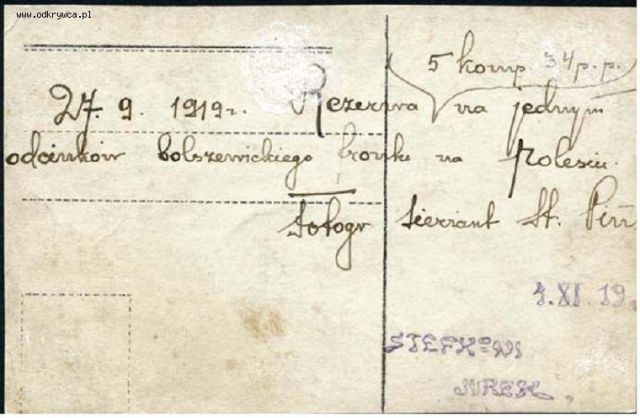 www.odkrywca.pl
5 komp. 34 p.p.
27. 9. 1919 r. Rezerwa na jednym
odcinków bolszewickiego frontu na Polesiu.
fotogr sierżant St.
4.XI.19.
JUREK